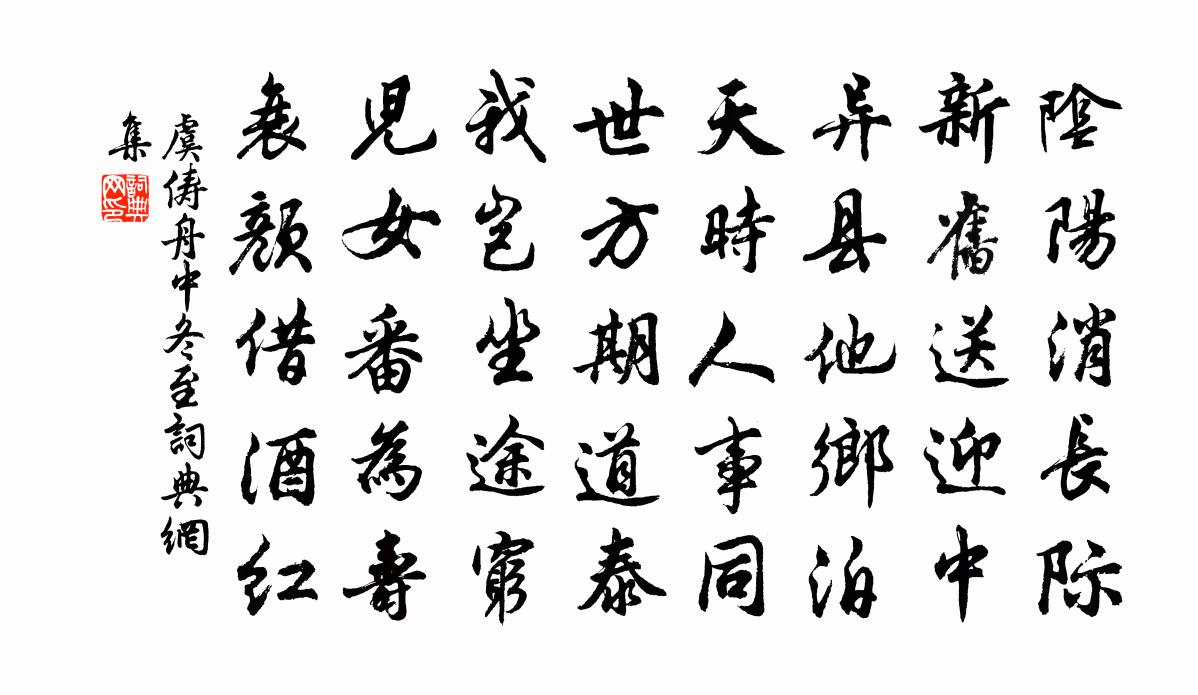 陰陽消長际
新舊送迎中
异县他鄉泊
天時人事同
世方期道泰
我岂坐途窮
児女番為壽
衰颜借酒红
虞俦舟中冬至詞典網
集
詞典
网印